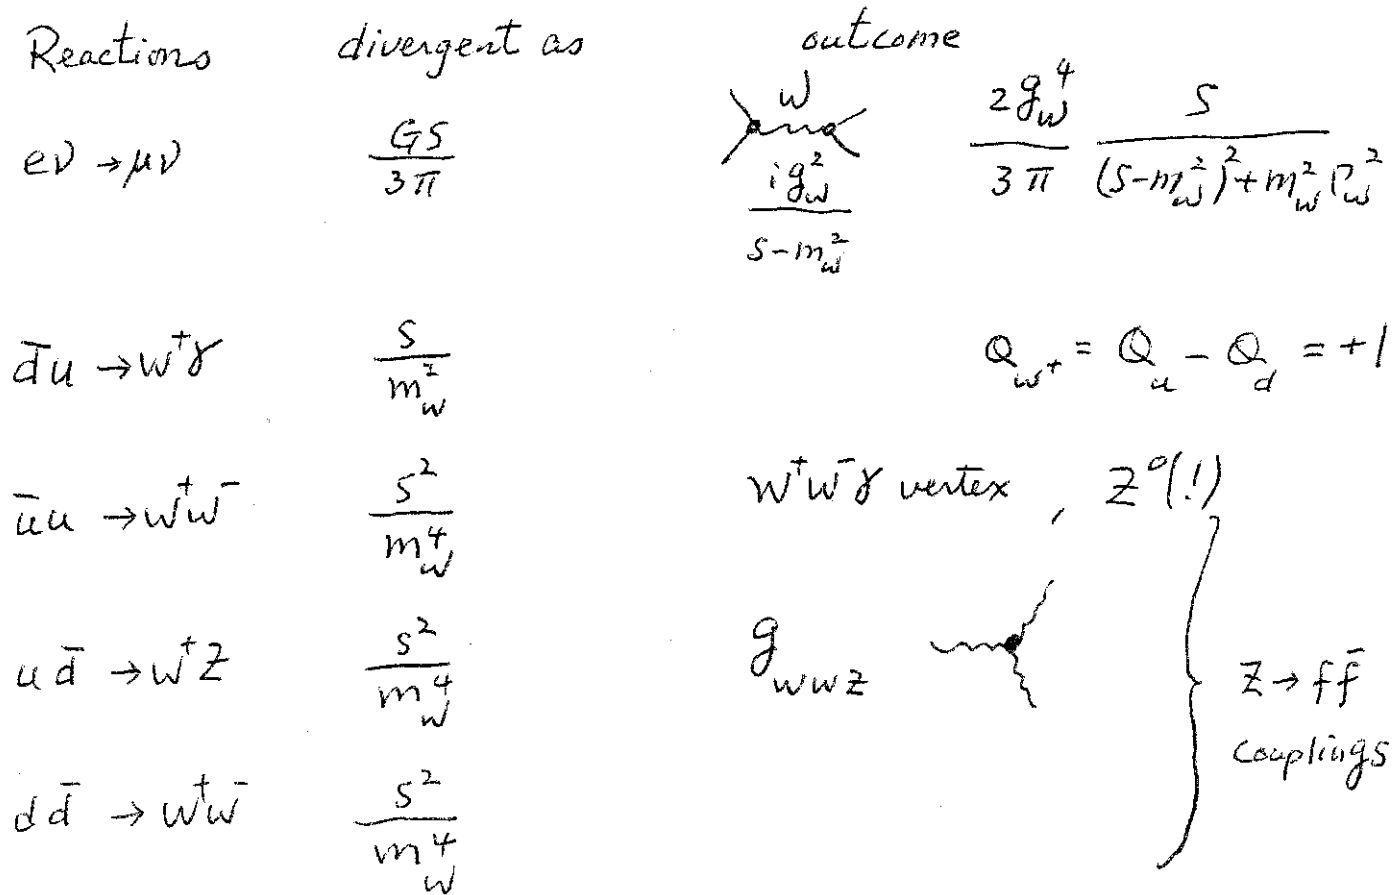 Reactions divergent as outcome
eν → μν GS/3π W ig_w²/(S-m_w²) 2g_w⁴/3π S/((S-m_w²)²+m_w²Γ_w²)
d̄u → W⁺γ S/m_w² Q_w⁺ = Q_u - Q_d = +1
ūu → W⁺W⁻ S²/m_w⁴ W⁺W⁻γ vertex, Z⁰(!)
u d̄ → W⁺Z S²/m_w⁴ g_wwz Z → f f̄
couplings
d d̄ → W⁺W⁻ S²/m_w⁴